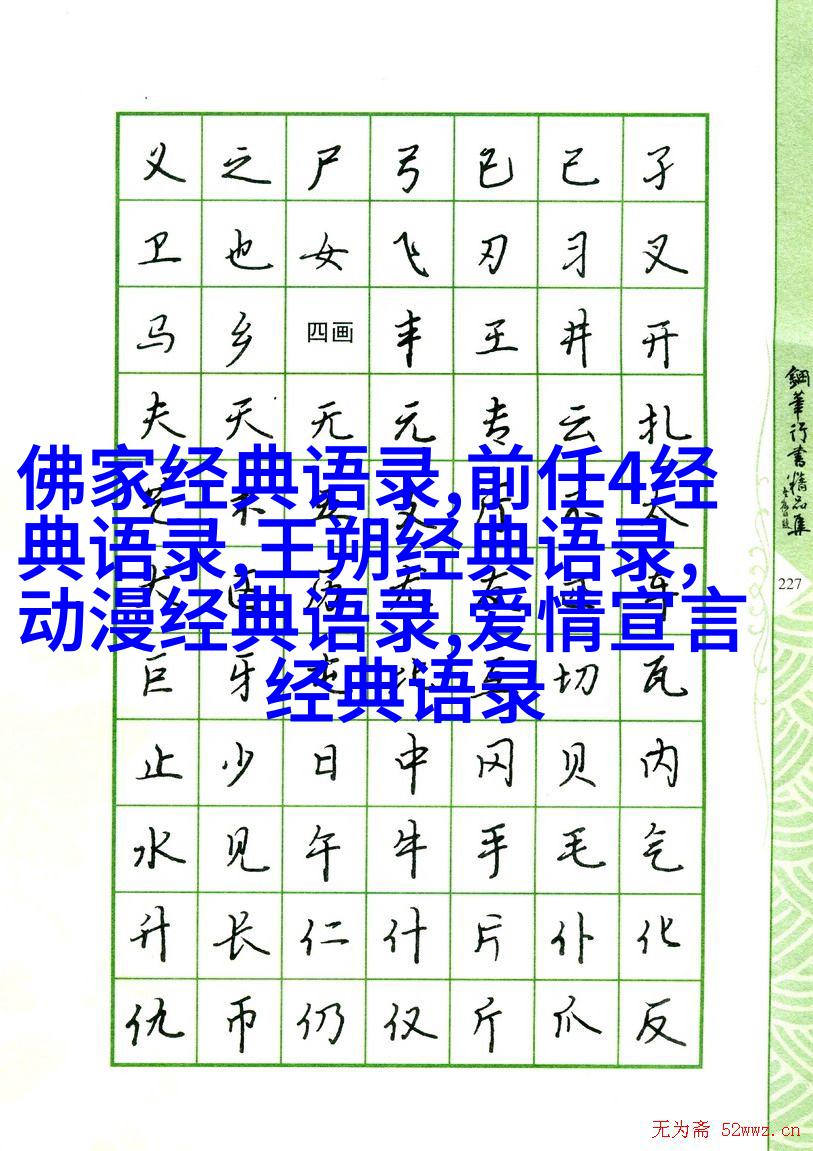 义 之 尸 弓 己 已 子
卫 也 女 飞 刃 习 叉
马 乡 四画 丰 王 井 开
夫 天 无 元 专 云 扎
艺 木 五 支 厅 不 太
区 历 友 匹 车
巨 牙 屯 比 互 切 瓦
止 少 日 中 冈 贝 内
水 见 午 牛 手 毛 气
升 长 仁 什 片 仆 化
仇 币 仍 仅 斤 爪 反
佛家经典语录,前任4经
典语录,王朔经典语录,
动漫经典语录,爱情宣言
经典语录
鋼筆行書精品集
227
无为斋 52wwz.cn